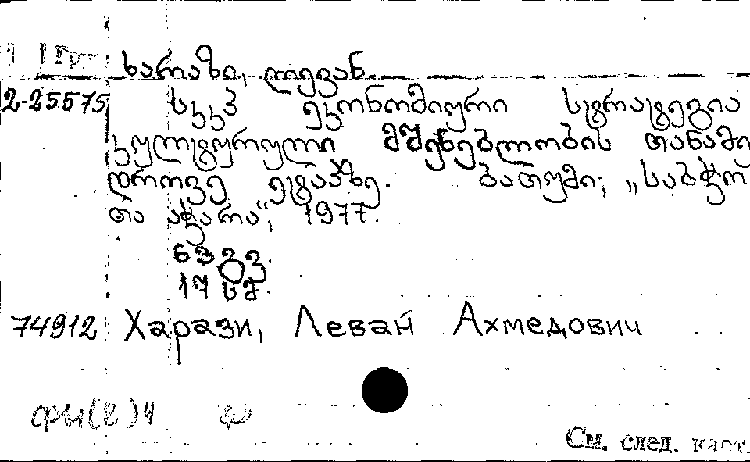 1 Гр.
ხარაზი, ლევან.
2-25575 სკკპ ეკონომიური სტრატეგია
კულტურული მშენებლობის თანამე
დროვე ეტაპზე. ბათუმი, „საბჭო
თა აჭარა“, 1977.
63 გვ.
17 სმ.
74912 Харази, Леван Ахмедович
См. след. карт